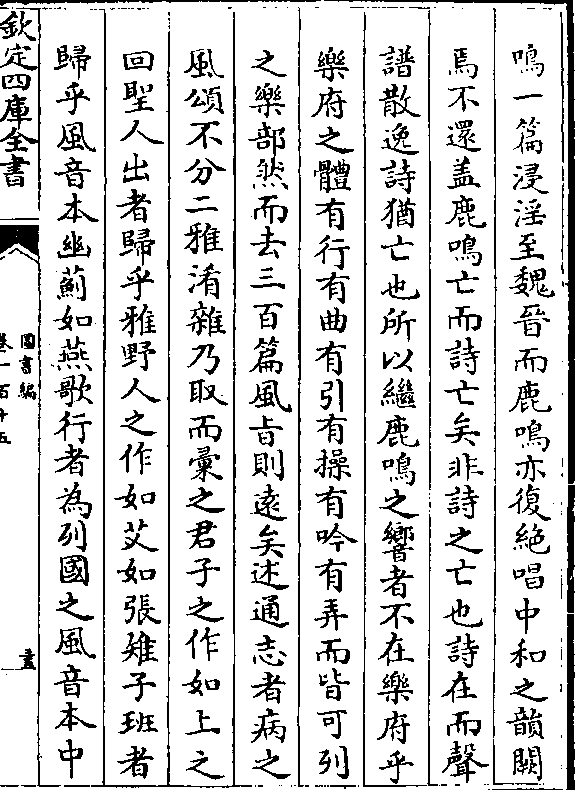 鳴一篇浸淫至魏晉而鹿鳴亦復絶唱中和之韻闕
焉不還盖鹿鳴亡而詩亡矣非詩之亡也詩在而聲
譜散逸詩猶亡也所以繼鹿鳴之響者不在樂府乎
樂府之體有行有曲有引有操有吟有弄而皆可列
之樂部然而去三百篇風旨則遠矣述通志者病之
風頌不分二雅淆雜乃取而彙之君子之作如上之
回聖人出者歸乎雅野人之作如艾如張雉子班者
歸乎風音本幽薊如燕歌行者為列國之風音本中
欽定四庫全書
圖書編
卷一百十五